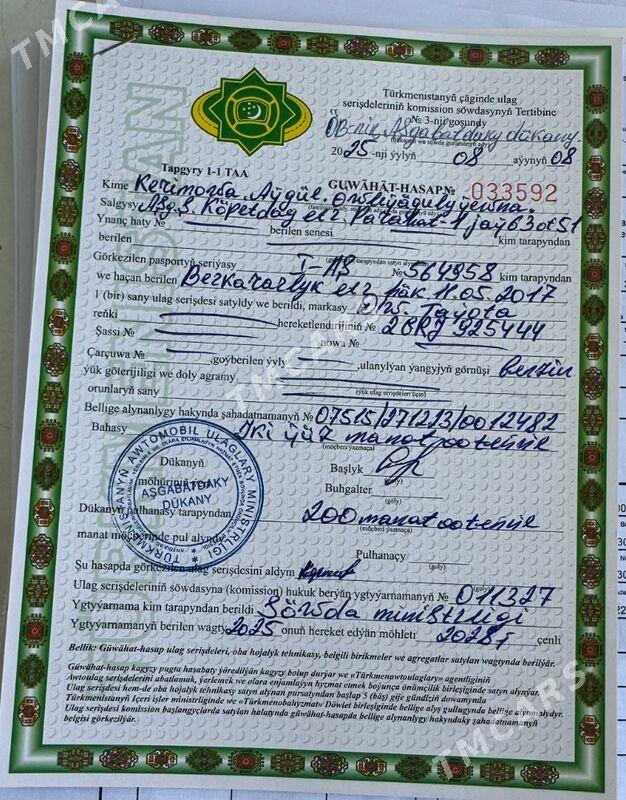 Türkmenistanyň çäginde ulag
serişdeleriniň komission söwdasynyň Tertibine
№ 3-nji goşundy
ÖB-niň Aşgabatdaky dükany
2025-nji ýylyň 08 aýynyň 08
Tapgyry 1-1 TAA GUWÄHÄT-HASAP№ 033592
Kime Kerimowa Aýgül
Salgysy Aşg.ş. Köpetdag etr. Parahat-1 jaý 63 ot 51
Ynanç haty № berilen senesi
berilen kim tarapyndan
Görkezilen pasportyň seriýasy I-AŞ № 564958 kim tarapyndan
we haçan berilen Berkararlyk etr häk 11.05.2017
1 (bir) sany ulag serişdesi satyldy we berildi, markasy Toyota
reňki hereketlendirijiniň № 2GRJ 925444
Şassi № nowa №
Çarçuwa № ,goýberilen ýyly ,ulanylýan ýangyjyň görnüşi benzin
ýük göterijiligi we doly agramy
orunlaryň sany (ýük ulag serişdeleri üçin)
Bellige alynanlygy hakynda şahadatnamanyň № 07515/271223/0012482
Bahasy Iki ýüz manat 00 teňňe
(möçberi ýazmaça)
Dükanyň Başlyk
(goly)
möhüriniň Buhgalter
(goly)
Dükanyň palhanasy tarapyndan 200 manat 00 teňňe
(möçberi ýazmaça)
manat möçberinde pul alyndy
Pulhanaçy
(goly)
TÜRKMENISTANYŇ AWTOMOBIL ULAGLARY MINISTRLIGI
AŞGABATDAKY
DÜKANY
Şu hasapda görkezilen ulag serişdesini aldym
(goly)
Ulag serişdesini söwdasyna (komission) hukuk berýän ygtyýarnamanyň № 011327
Ygtyýarnama kim tarapyndan berildi Söwda ministrligi
Ygtyýarnamanyň berilen wagty 2025 onuň hereket edýän möhleti 2028ý çenli
Bellik: Güwähat-hasap ulag serişdeleri, oba hojalyk tehnikasy, belgili birikmeler we agregatlar satylan wagtynda berilýär.
Güwähat-hasap kagyzy pugta hasabaty ýöredilýän kagyz bolup durýar we «Türkmenawtoulaglary» agentliginiň
Awtoulag serişdelerini abatlamak, ýerlemek we olara enjamlaýyn hyzmat etmek boýunça önümçilik birleşiginde satyn alynýar.
Ulag serişdesi hem-de oba hojalyk tehnikasy satyn alynan pursatyndan başlap 5 (bäş) güje günäziň dowamynda
Türkmenistanyň Içeri işler ministrliginde we «Türkmenobahyzmat» Döwlet birleşiginde bellige alyş gullugynda bellige alynmalydyr.
Ulag serişdesi komission başlangyçlarda satylan halatynda güwähat-hasapda bellige alynanlygy hakyndaky şahadatnamanyň
belgisi görkezilýär.
TMCARS